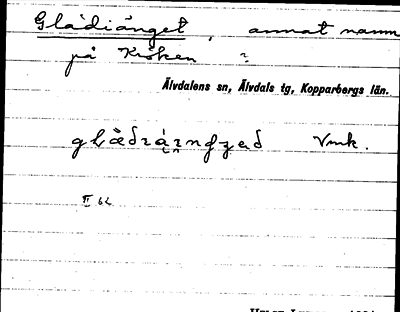 Glädiänget, annat namn
på Kröken ?
Älvdalens sn, Älvdals tg, Kopparbergs län.
Vmk.
II 62